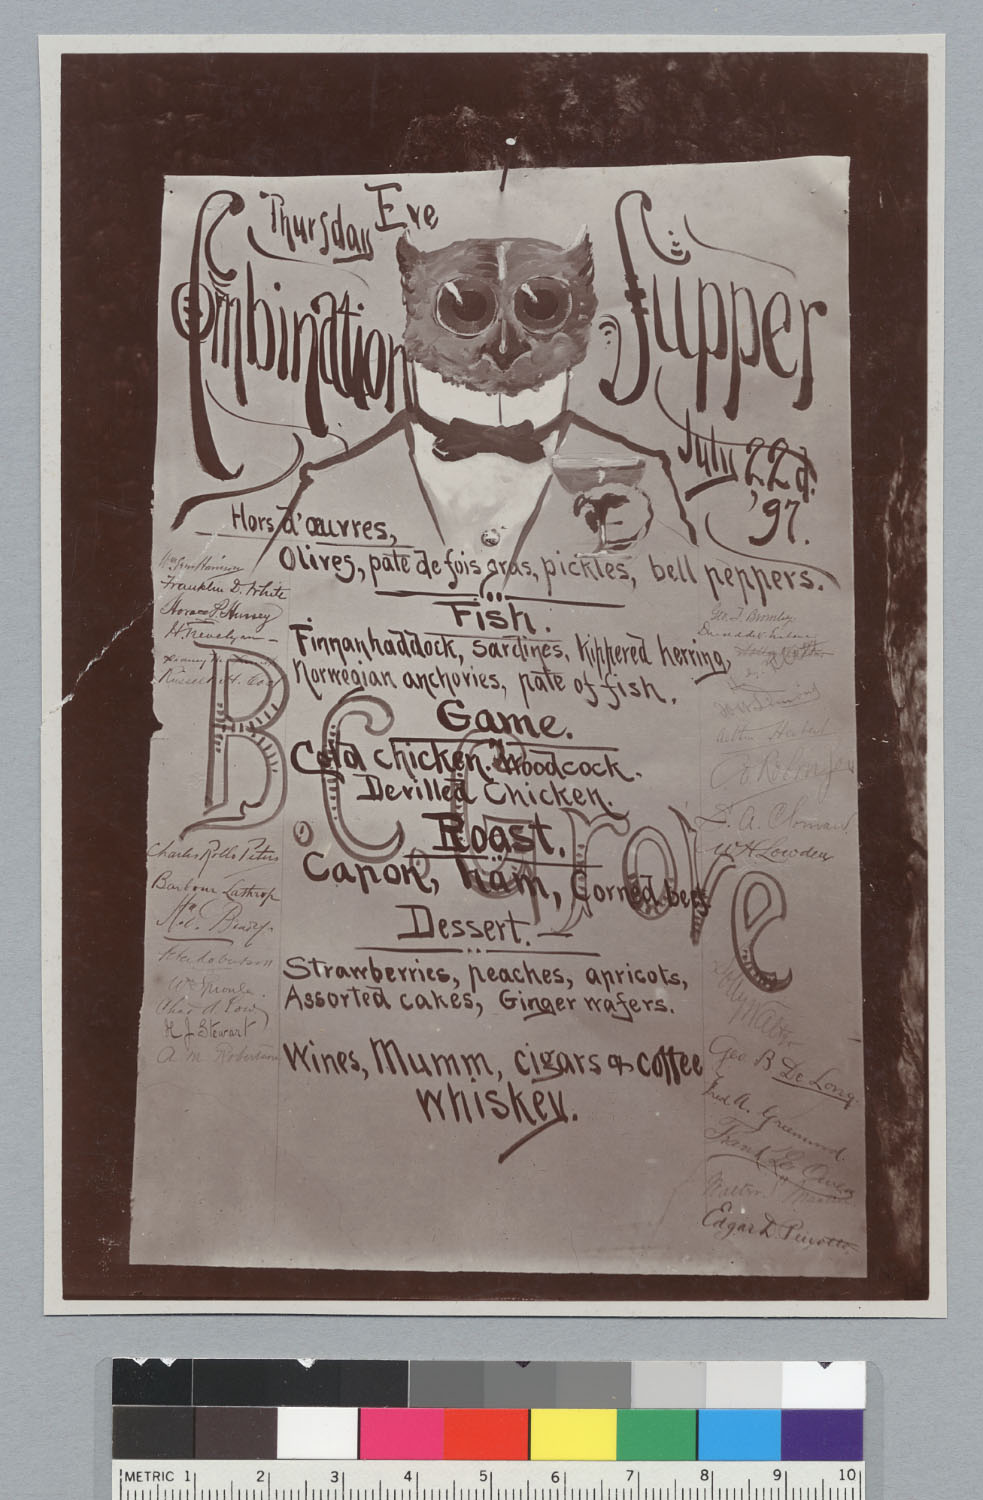 Thursday Eve
Combination Supper
July 22d.
'97.
Hors d'œuvres,
Olives, pate de fois gras, pickles, bell peppers.
Fish.
Finnanhaddock, sardines, Kippered herring,
Norwegian anchovies, pate of fish.
Game.
Cold chicken. Woodcock.
Devilled Chicken.
Roast.
Capon, ham, Corned beef
Dessert.
Strawberries, peaches, apricots,
Assorted cakes, Ginger wafers.
Wines, Mumm, cigars & coffee
Whiskey.
B.C. Grove
Franklin D. White
Horace P. Hussey
Charles Rollo Peters
Barbour Lathrop
H J Stewart
A. M. Robertson
Geo. T. Bromley
Arthur Herbert
W H Lowden
Geo B De Long
Fred A. Greenwood.
Frank L. Owen
Walter
Edgar D. Peixotto.
METRIC 1 2 3 4 5 6 7 8 9 10